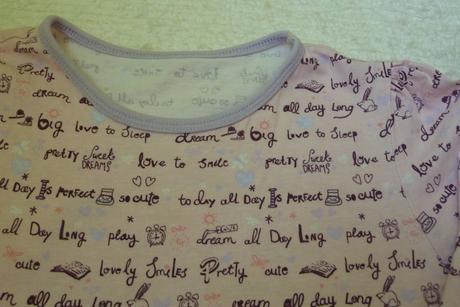 love to smile
play
Pretty
lovely Smiles
dream all day
to day all
so cute
dream
all day Long
Big love to Sleep
dream Big love to Sleep
pretty Sweet DREAMS love to smile pretty Sweet DREAMS love to
all Day Is PERFECT so cute to day all Day Is PERFECT so cute
all Day Long play dream all Day Long play
cute lovely Smiles Pretty cute lovely Smiles
dream all day Long dream all day